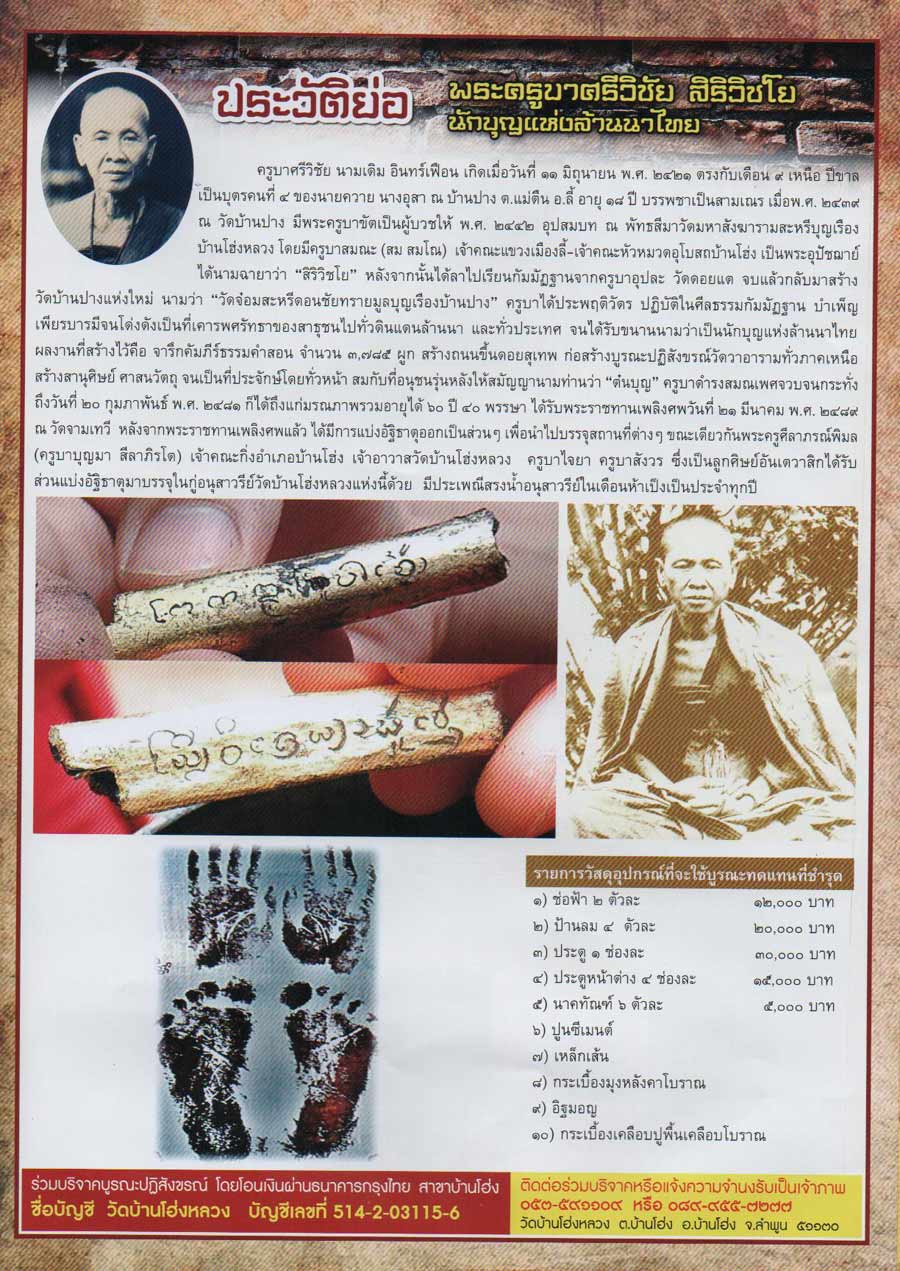 ประวัติย่อ
พระครูบาศรีวิชัย สิริวิชโย
นักบุญแห่งล้านนาไทย
ครูบาศรีวิชัย นามเดิม อินทร์เฟือน เกิดเมื่อวันที่ ๑๑ มิถุนายน พ.ศ. ๒๔๒๑ ตรงกับเดือน ๙ เหนือ ปีขาล
เป็นบุตรคนที่ ๔ ของนายควาย นางอุสา ณ บ้านปาง ต.แม่ตืน อ.ลี้ อายุ ๑๘ ปี บรรพชาเป็นสามเณร เมื่อพ.ศ. ๒๔๓๙
ณ วัดบ้านปาง มีพระครูบาขัตเป็นผู้บวชให้ พ.ศ. ๒๔๔๒ อุปสมบท ณ พัทธสีมาวัดมหาสังฆารามสะหรีบุญเรือง
บ้านโฮ่งหลวง โดยมีครูบาสมณะ (สม สมโณ) เจ้าคณะแขวงเมืองลี้-เจ้าคณะหัวหมวดอุโบสถบ้านโฮ่ง เป็นพระอุปัชฌาย์
ได้นามฉายาว่า “สิริวิชโย” หลังจากนั้นได้ลาไปเรียนกัมมัฏฐานจากครูบาอุปละ วัดดอยแต จบแล้วกลับมาสร้าง
วัดบ้านปางแห่งใหม่ นามว่า “วัดจ๋อมสะหรีดอนชัยทรายมูลบุญเรืองบ้านปาง” ครูบาได้ประพฤติวัตร ปฏิบัติในศีลธรรมกัมมัฏฐาน บำเพ็ญ
เพียรบารมีจนโด่งดังเป็นที่เคารพศรัทธาของสาธุชนไปทั่วดินแดนล้านนา และทั่วประเทศ จนได้รับขนานนามว่าเป็นนักบุญแห่งล้านนาไทย
ผลงานที่สร้างไว้คือ จารึกคัมภีร์ธรรมคำสอน จำนวน ๓,๗๘๕ ผูก สร้างถนนขึ้นดอยสุเทพ ก่อสร้างบูรณะปฏิสังขรณ์วัดวาอารามทั่วภาคเหนือ
สร้างสานุศิษย์ ศาสนวัตถุ จนเป็นที่ประจักษ์โดยทั่วหน้า สมกับที่อนุชนรุ่นหลังให้สมัญญานามท่านว่า “ต๋นบุญ” ครูบาดำรงสมณเพศจวบจนกระทั่ง
ถึงวันที่ ๒๐ กุมภาพันธ์ พ.ศ. ๒๔๘๑ ก็ได้ถึงแก่มรณภาพรวมอายุได้ ๖๐ ปี ๔๐ พรรษา ได้รับพระราชทานเพลิงศพวันที่ ๒๑ มีนาคม พ.ศ. ๒๔๘๙
ณ วัดจามเทวี หลังจากพระราชทานเพลิงศพแล้ว ได้มีการแบ่งอัฐิธาตุออกเป็นส่วนๆ เพื่อนำไปบรรจุสถานที่ต่างๆ ขณะเดียวกันพระครูศีลาภรณ์พิมล
(ครูบาบุญมา สีลาภิรโต) เจ้าคณะกิ่งอำเภอบ้านโฮ่ง เจ้าอาวาสวัดบ้านโฮ่งหลวง ครูบาไจยา ครูบาสังวร ซึ่งเป็นลูกศิษย์อันเตวาสิกได้รับ
ส่วนแบ่งอัฐิธาตุมาบรรจุในกู่อนุสาวรีย์วัดบ้านโฮ่งหลวงแห่งนี้ด้วย มีประเพณีสรงน้ำอนุสาวรีย์ในเดือนห้าเป็งเป็นประจำทุกปี
รายการวัสดุอุปกรณ์ที่จะใช้บูรณะทดแทนที่ชำรุด
๑) ช่อฟ้า ๒ ตัวละ ๑๒,๐๐๐ บาท
๒) ป้านลม ๔ ตัวละ ๒๐,๐๐๐ บาท
๓) ประตู ๑ ช่องละ ๓๐,๐๐๐ บาท
๔) ประตูหน้าต่าง ๔ ช่องละ ๑๕,๐๐๐ บาท
๕) นาคทัณฑ์ ๖ ตัวละ ๕,๐๐๐ บาท
๖) ปูนซีเมนต์
๗) เหล็กเส้น
๘) กระเบื้องมุงหลังคาโบราณ
๙) อิฐมอญ
๑๐) กระเบื้องเคลือบปูพื้นเคลือบโบราณ
ร่วมบริจาคบูรณะปฏิสังขรณ์ โดยโอนเงินผ่านธนาคารกรุงไทย สาขาบ้านโฮ่ง
ชื่อบัญชี วัดบ้านโฮ่งหลวง บัญชีเลขที่ 514-2-03115-6
ติดต่อร่วมบริจาคหรือแจ้งความจำนงรับเป็นเจ้าภาพ
๐๕๓-๕๙๑๑๐๙ หรือ ๐๘๙-๙๕๕-๗๒๗๗
วัดบ้านโฮ่งหลวง ต.บ้านโฮ่ง อ.บ้านโฮ่ง จ.ลำพูน ๕๑๑๓๐